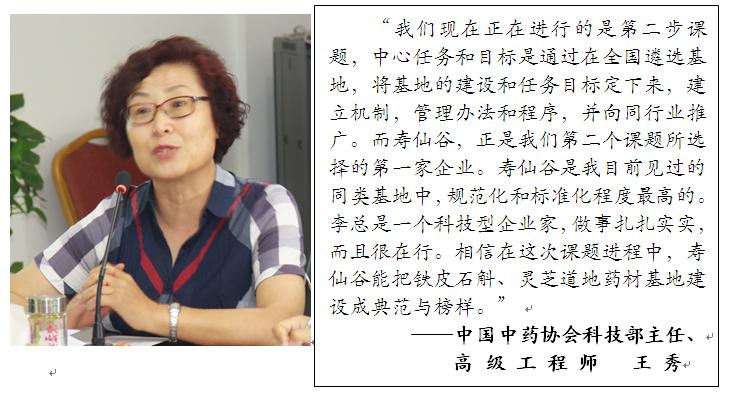 “我们现在正在进行的是第二步课
题，中心任务和目标是通过在全国遴选基
地，将基地的建设和任务目标定下来，建
立机制，管理办法和程序，并向同行业推
广。而寿仙谷，正是我们第二个课题所选
择的第一家企业。寿仙谷是我目前见过的
同类基地中，规范化和标准化程度最高的。
李总是一个科技型企业家，做事扎扎实实，
而且很在行。相信在这次课题进程中，寿
仙谷能把铁皮石斛、灵芝道地药材基地建
设成典范与榜样。”
——中国中药协会科技部主任、
高级工程师 王秀